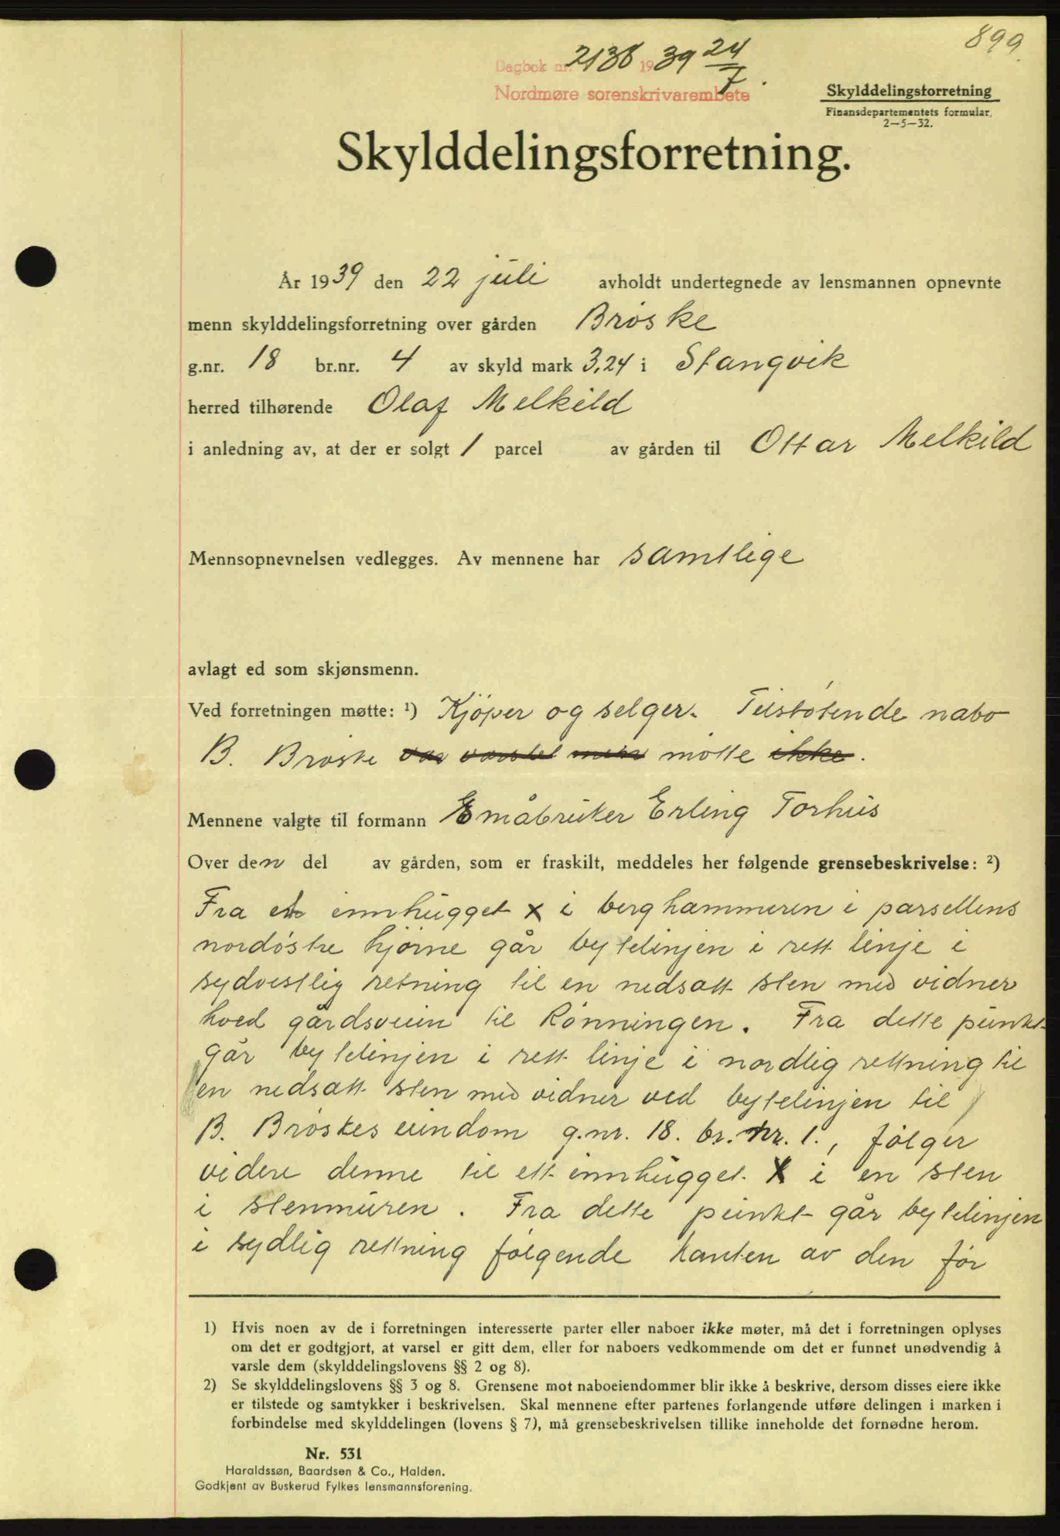 899
Dagbok nr. 2138 1939 24/7
Nordmøre sorenskrivarembete
Skylddelingsforretning
Finansdepartementets formular.
2—5—32.
Skylddelingsforretning.
År 1939 den 22 juli avholdt undertegnede av lensmannen opnevnte
menn skylddelingsforretning over gården Brøske
g.nr. 18 br.nr. 4 av skyld mark 3,24 i Stangvik
herred tilhørende Olaf Melkild
i anledning av, at der er solgt 1 parcel av gården til Ottar Melkild
Mennsopnevnelsen vedlegges. Av mennene har samtlige
avlagt ed som skjønsmenn.
Ved forretningen møtte: ¹) Kjøper og selger. Tilstøtende nabo
B. Brøske var varslet men møtte ikke.
Mennene valgte til formann Småbruker Erling Torhus
Over den del av gården, som er fraskilt, meddeles her følgende grensebeskrivelse: ²)
Fra et innhugget x i berghammeren i parsellens
nordøstre hjørne går bytelinjen i rett linje i
sydvestlig retning til en nedsatt sten med vidner
hved gårdsveien til Rønningen. Fra dette punkt
går bytelinjen i rett linje i nordlig rettning til
en nedsatt sten med vidner ved bytelinjen til
B. Brøskes eiendom g.nr. 18. br. nr. 1., følger
videre denne til ett innhugget X i en sten
i stenmuren. Fra dette punkt går bytelinjen
i sydlig rettning følgende kanten av den før
1) Hvis noen av de i forretningen interesserte parter eller naboer ikke møter, må det i forretningen oplyses
om det er godtgjort, at varsel er gitt dem, eller for naboers vedkommende om det er funnet unødvendig å
varsle dem (skylddelingslovens §§ 2 og 8).
2) Se skylddelingslovens §§ 3 og 8. Grensene mot naboeiendommer blir ikke å beskrive, dersom disses eiere ikke
er tilstede og samtykker i beskrivelsen. Skal mennene efter partenes forlangende utføre delingen i marken i
forbindelse med skylddelingen (lovens § 7), må grensebeskrivelsen tillike inneholde det fornødne herom.
Nr. 531
Haraldssøn, Baardsen & Co., Halden.
Godkjent av Buskerud Fylkes lensmannsforening.